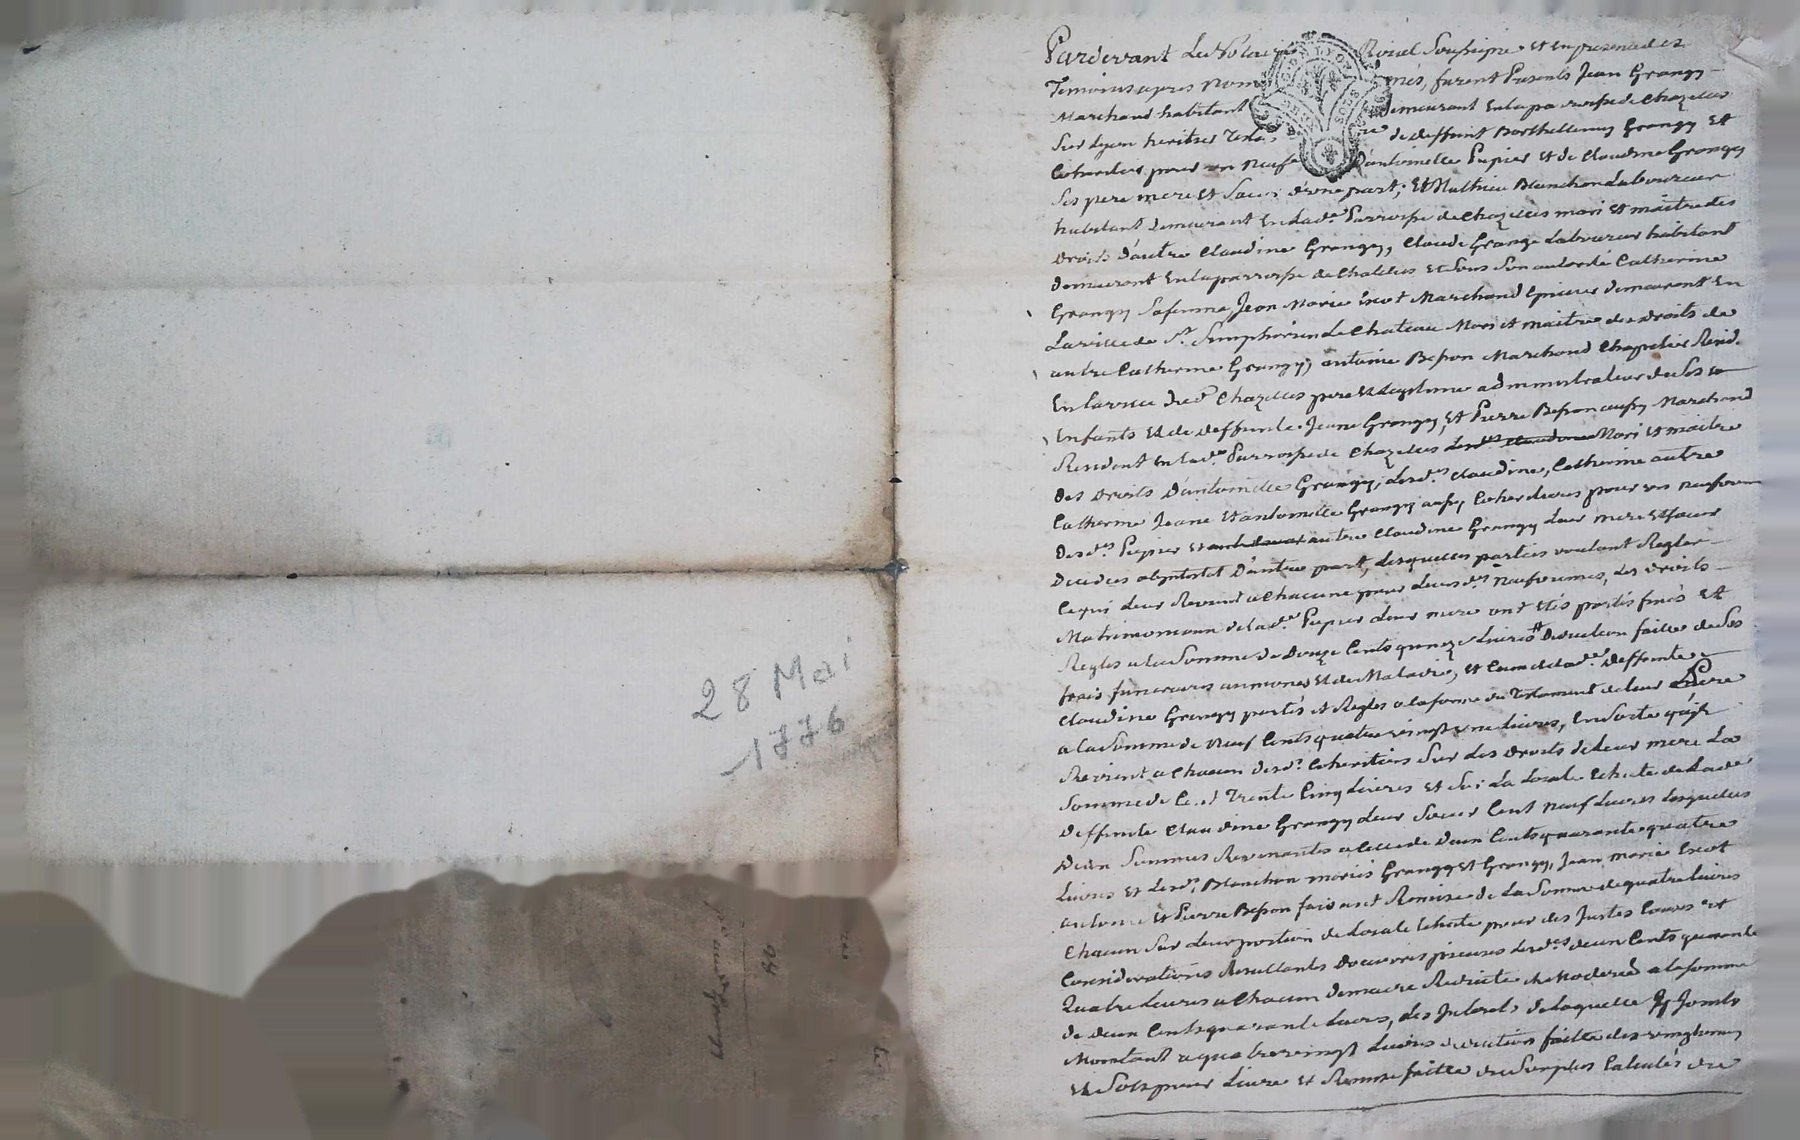 28 Mai
1776
Pardevant Le Notaire Roial Soussigné et en presence des
Temoins apres nommés, furent Presents Jean Grangy
Marchand habitant demeurant en la parroisse de Chazelles
Sur Lyon heritier de deffunt Barthellemy Grangy et
Coheritier pour un neuf d'antoinette Pupier et de Claudine Grangy
Ses pere mere et Sœur d'une part; et Mathieu Blanchon Laboureur
habitant demeurant en lade Parroisse de Chazelles mari et maitre des
droits d'autre Claudine Grangy, Claude Grange Laboureur habitant
demeurant en la parroisse de et sous son autorité Catherine
Grangy Sa femme, Jean Marie Marchand Epicier demeurant en
La ville de St. Simphorien Le Chateau Mari et maitre des droits de
autre Catherine Grangy, antoine Besson Marchand Chapelier Resid.
En la ville dud. Chazelles pere et legitime administrateur de ses
Enfants et de deffunte Jeane Grangy, et Pierre Besson aussy Marchand
Resident en lade. Parroisse de Chazelles Mari et maitre
des droits D'antoinette Grangy, lesds. Claudine, Catherine autre
Catherine Jeane et antoinette Grangy aussy Coheritieres pour un neufvieme
desds. Pupier et autre Claudine Grangy Leur mere et sœur
decedées abintestat D'autre part, Lesquelles parties voulant Regler
Ce qui leur Revient a chacune pour leurs ds. neufviemes, les droits
Matrimoniaux de lade. Pupier Leur mere ont etés partis finis et
Reglés a la Somme de Douze Cents quinze Livres deduction faitte de Ses
frais funeraires aumones et de Maladie, et Ceux de lade. deffunte
Claudine Grangy partis et Reglés a la forme du Testament de leur Pere
a la Somme de Neuf Cents quatre vingt une livres, En Sorte qu'il
Revient a Chacun desd. Coheritiers Sur les droits de leur mere La
Somme de Cent Trente Cinq Livres et Sur La Locale Echute de Lade
deffunte Claudine Grangy leur Sœur Cent Neuf Livres Lesquelles
deux Sommes Revenantes a Celle de deux Cents quarante quatre
Livres et Lesd. Blanchon mariés Grangy et Grangy, Jean Marie
antoine et Pierre Besson faisant Remise de La Somme de quatre Livres
Chacun Sur leur portion de Locale Echute pour des Justes Causes et
Considerations Resultants D'œuvres pieuses lesds. deux Cents quarante
Quatre Livres a Chacun demeure Reduitte et Moderée a la somme
de deux Cents quarante Livres, les Interets de laquelle
Montant a quatre vingt Livres deduction faitte des vingtiemes
et Sols pour Livre et Remise faitte du Simples Calculés du